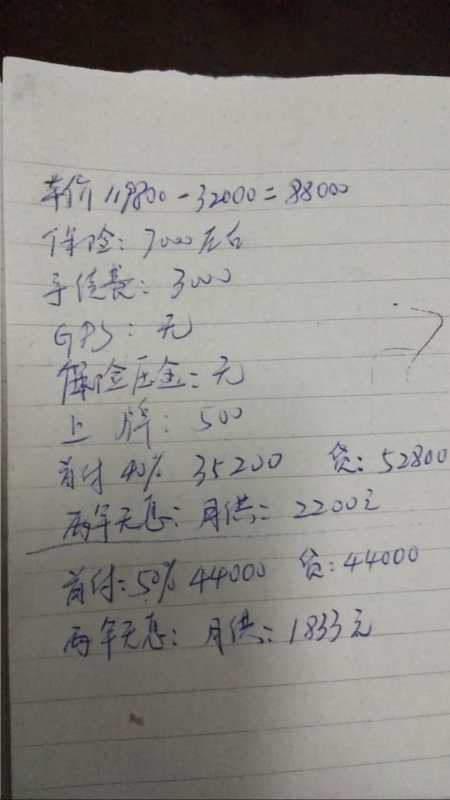 车价 119800-32000=88000
保险：7000左右
手续费：3000
GPS：无
保险压金：无
上牌：500
首付 40% 35200 贷：52800
两年无息：月供：2200元
首付：50% 44000 贷：44000
两年无息：月供：1833元